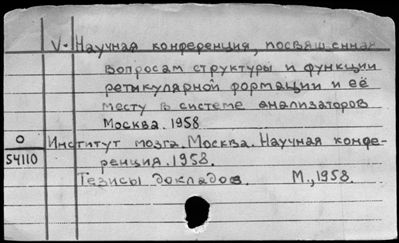 V. Научная конференция, посвященная
вопросам структуры и функции
ретикулярной формации и её
месту в системе анализаторов
Москва. 1958
О
54110
Институт мозга. Москва. Научная конфе-
ренция. 1958.
Тезисы докладов. М., 1958.